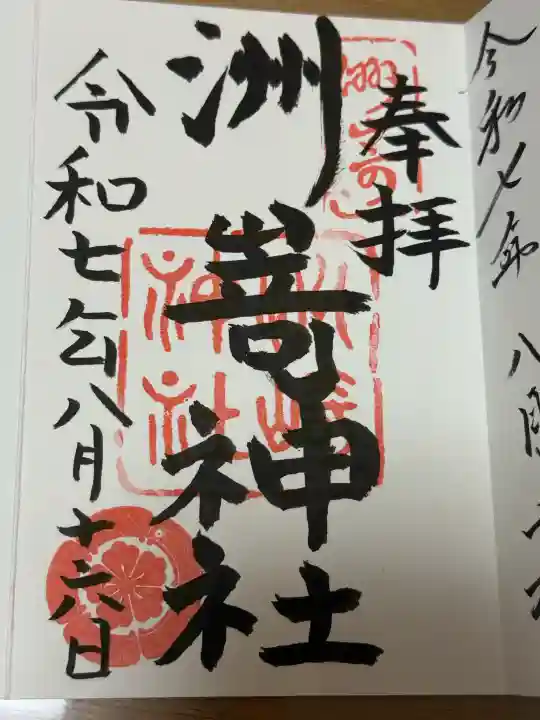 令和七年八月
奉拝
洲嵜神社
神社
令和七年八月十六日